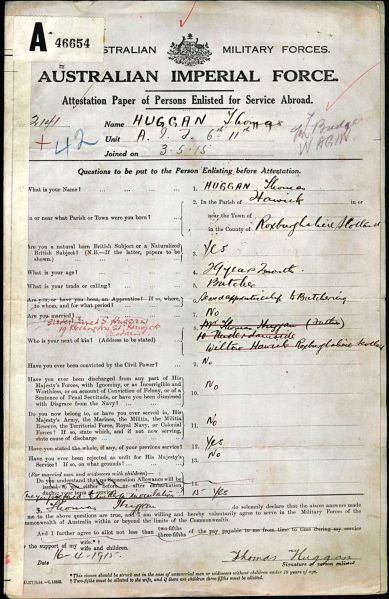 A 46654
AUSTRALIAN MILITARY FORCES.
AUSTRALIAN IMPERIAL FORCE.
Attestation Paper of Persons Enlisted for Service Abroad.
2141
Name HUGGAN Thomas
Unit A. I. F. 6th 11th
+42
Joined on 3-5-15
Questions to be put to the Person Enlisting before Attestation.
What is your Name?
1. HUGGAN Thomas
2. In the Parish of Hawick in or
In or near what Parish or Town were you born?
near the Town of
in the County of Roxburghshire Scotland
Are you a natural born British Subject or a Naturalized British Subject? (N.B.—If the latter, papers to be shown).
3. Yes
What is your age?
4. 29 years 2 month
What is your trade or calling?
5. Butcher
Are you, or have you been, an Apprentice? If so, where, to whom, and for what period?
6. apprenticeship to Butchering
Are you married?
No
Who is your next of kin? (Address to be stated)
Mr Thomas Huggan (Father)
Wilton Hawick Roxburghshire Scotland
Have you ever been convicted by the Civil Power?
9. No
Have you ever been discharged from any part of His Majesty's Forces, with Ignominy, or as Incorrigible and Worthless, or on account of Conviction of Felony, or of a Sentence of Penal Servitude, or have you been dismissed with Disgrace from the Navy?
10. No
Do you now belong to, or have you ever served in, His Majesty's Army, the Marines, the Militia, the Militia Reserve, the Territorial Force, Royal Navy, or Colonial Forces? If so, state which, and if not now serving, state cause of discharge
11. No
Have you stated the whole, if any, of your previous service?
12. Yes
Have you ever been rejected as unfit for His Majesty's Service? If so, on what grounds?
13. No
(For married men and widowers with children)
Do you understand that no Separation Allowance will be
during your term of
inoculation
15 Yes
I, Thomas Huggan do solemnly declare that the above answers made
by me to the above questions are true, and I am willing and hereby voluntarily agree to serve in the Military Forces of the
Commonwealth of Australia within or beyond the limits of the Commonwealth.
And I further agree to allot not less than two-fifths three-fifths of the pay payable to me from time to time during my service
for the support of my wife. wife and children.
Date 16-4-1915
Thomas Huggan
Signature of person enlisted.
* This clause should be struck out in the case of unmarried men or widowers without children under 18 years of age.
† Two-fifths must be allotted to the wife, and if there are children three-fifths must be allotted.